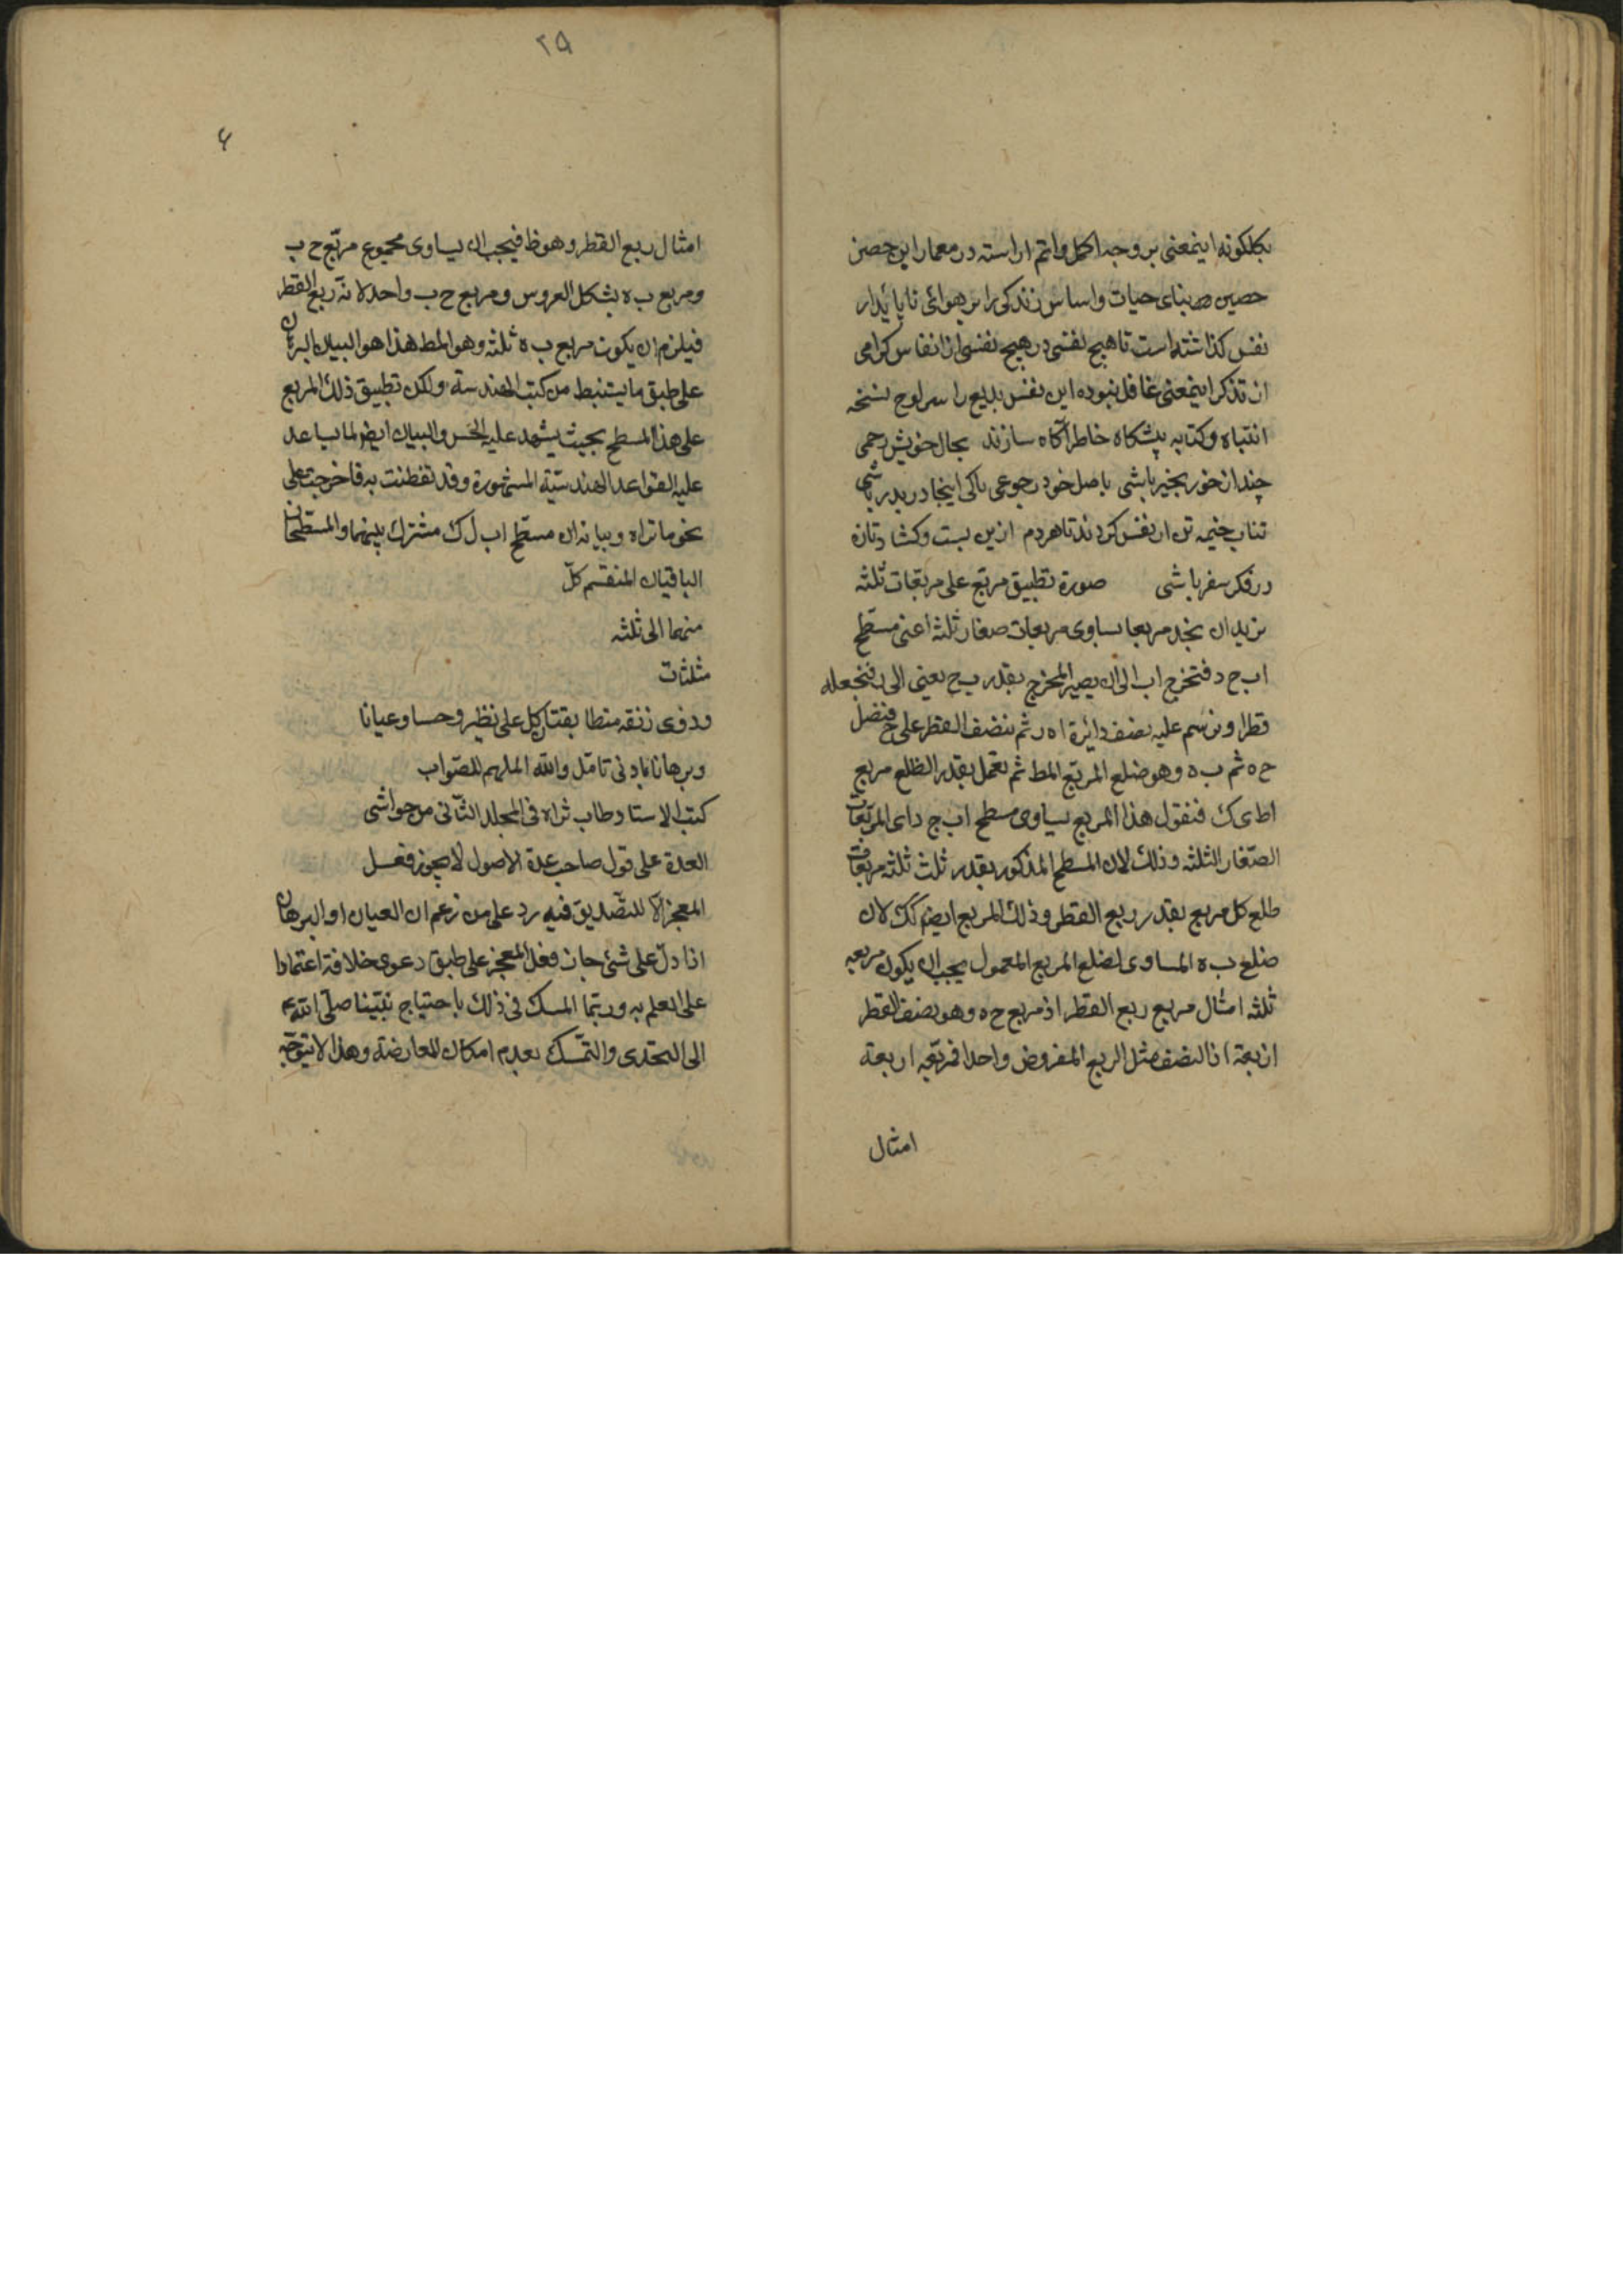 بکلکونه اینمعنی بر وجه اکمل و اتم اراسته در معمار این حصن
حصین بنای حیات و اساس زندکی را بر هوائی ناپائدار
نفس کذاشته است تا هیچ نفسی در هیچ نفسی از انفاس کرامی
از تذکر اینمعنی غافل نبوده این نفس بدیع را سر لوح نسخه
انتباه و کتابه پیشکاه خاطر آکاه سازند بحال خویش رحمی
چند از خود بیخبر باشی باصل خود رجوعی تا کی اینجا دربدر باشی
تناب خیمه تن از نفس کردند تا هر دم ازین بست و کشادتان
در فکر سفر باشی صورة تطبیق مربّع علی مربّعات ثلثه
نرید ان نجد مربعا یساوی مربعات صغار ثلثه اعنی مسطّح
اب ج د فنخرج اب الی ان یصیر المخرج بقدر ب ح یعنی الی ر فنجعله
قطرا و نرسم علیه نصف دائرة اه ر ثم ننصف القطر علی ح فنصل
ح ه ثم ب ه و هو ضلع المربّع المط ثم نعمل بقدر الظلع مربع
اط ی ک فنقول هذا المربع یساوی مسطح اب ج د ای المربّعات
الصّغار الثلثه و ذلک لان المسطح المذکور بقدر ثلث ثلثه مربّعات
ظلع کل مربع بقدر ربع القطر و ذلک المربع ایضم کک لان
ضلع ب ه المساوی لضلع المربع المعمول یجب ان یکون مربعه
ثلثه امثال مربع ربع القطر اذ مربع ح ه و هو نصف القطر
اربعة اذ النصف مثل الربع المفروض واحدا فربّعه اربعة
امثال
۲۵
۴
امثال ربع القطر و هو ظ فیجب ان یساوی مجموع مربّع ح ب
و مربع ب ه بشکل العروس و مربع ح ب واحد لانه ربع القطر
فیلزم ان یکون مربع ب ه ثلثه و هو المط هذا هو البیان البرهان
علی طبق ما یستنبط من کتب الهندسة و لکن تطبیق ذلک المربع
علی هذا المسطح بحیث یشهد علیه الحس و البیان ایضم لما یساعد
علیه القواعد الهندسیّة المشهورة و قد تفطنت به فاخرجت علی
نحو ما تراه و بیانه ان مسطّح اب ل ک مشترک بینهما و المسطّحان
الباقیان المنقسم کلّ
منهما الی ثلثه
مثلثات
و برهانا بادنی تامّل و الله الملهم للصّواب
کتب الاستاد طاب ثراه فی المجلد الثّانی من حواشی
العدة علی قول صاحب عدة الاصول لا یجوز فعل
المعجز الّا للتصّدیق فیه رد علی من زعم ان العیان او البرهان
اذا دلّ علی شئ جاز فعل المعجز علی طبق دعوی خلافه اعتمادا
علی العلم به و ربّما المسک فی ذلک باحتیاج نبّینا صلّی الله
الی التحدی و التمّسک بعدم امکان المعارضة و هذا لا یتوجّه